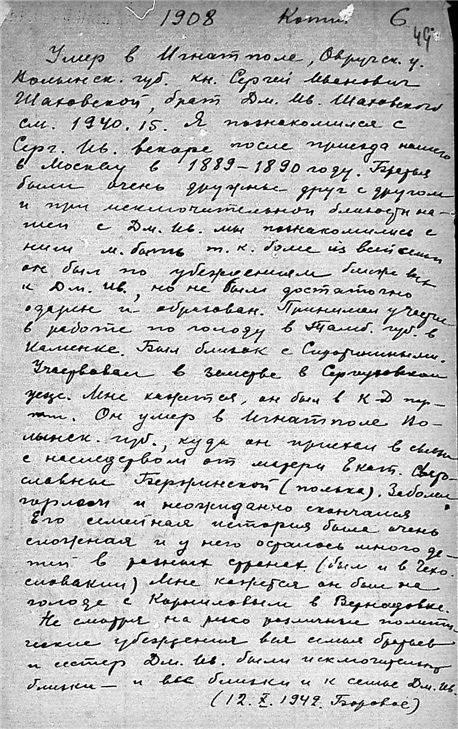 1908 Копия 6
49
Умер в Игнатполе, Овручск. у.
Волынск. губ. кн. Сергей Иванович
Шаховской, брат Дм. Ив. Шаховского
см. 1940.15. Я познакомился с
Серг. Ив. вскоре после приезда нашего
в Москву в 1889-1890 году. Братья
были очень дружны друг с другом
и при исключительной близости на-
шей с Дм. Ив. мы познакомились с
ним м. быть т. к. более из всей семьи
он был по убеждениям ближе всех
к Дм. Ив., но не был достаточно
одарен и образован. Принимал участие
в работе по голоду в Тамб. губ. в
Каменке. Был близок с Сиротиниными.
Участвовал в земстве в Серпуховском
уезде. Мне кажется, он был в К-Д пар-
тии. Он умер в Игнатполе Во-
лынск. губ., куда он приехал в связи
с наследством от матери Екат. Свято-
славны Бержинской (полька). Заболел
и неожиданно скончался
Его семейная история была очень
сложная и у него осталось много де-
тей в разных странах (был и в Чехо-
словакии) Мне кажется он был на
голоде с Корниловым в Вернадовке.
Не смотря на резко различные полити-
ческие убеждения вся семья братьев
и сестер Дм. Ив. были исключительно
близки — и все близки и к семье Дм. Ив.
(12.X.1942. Боровое)